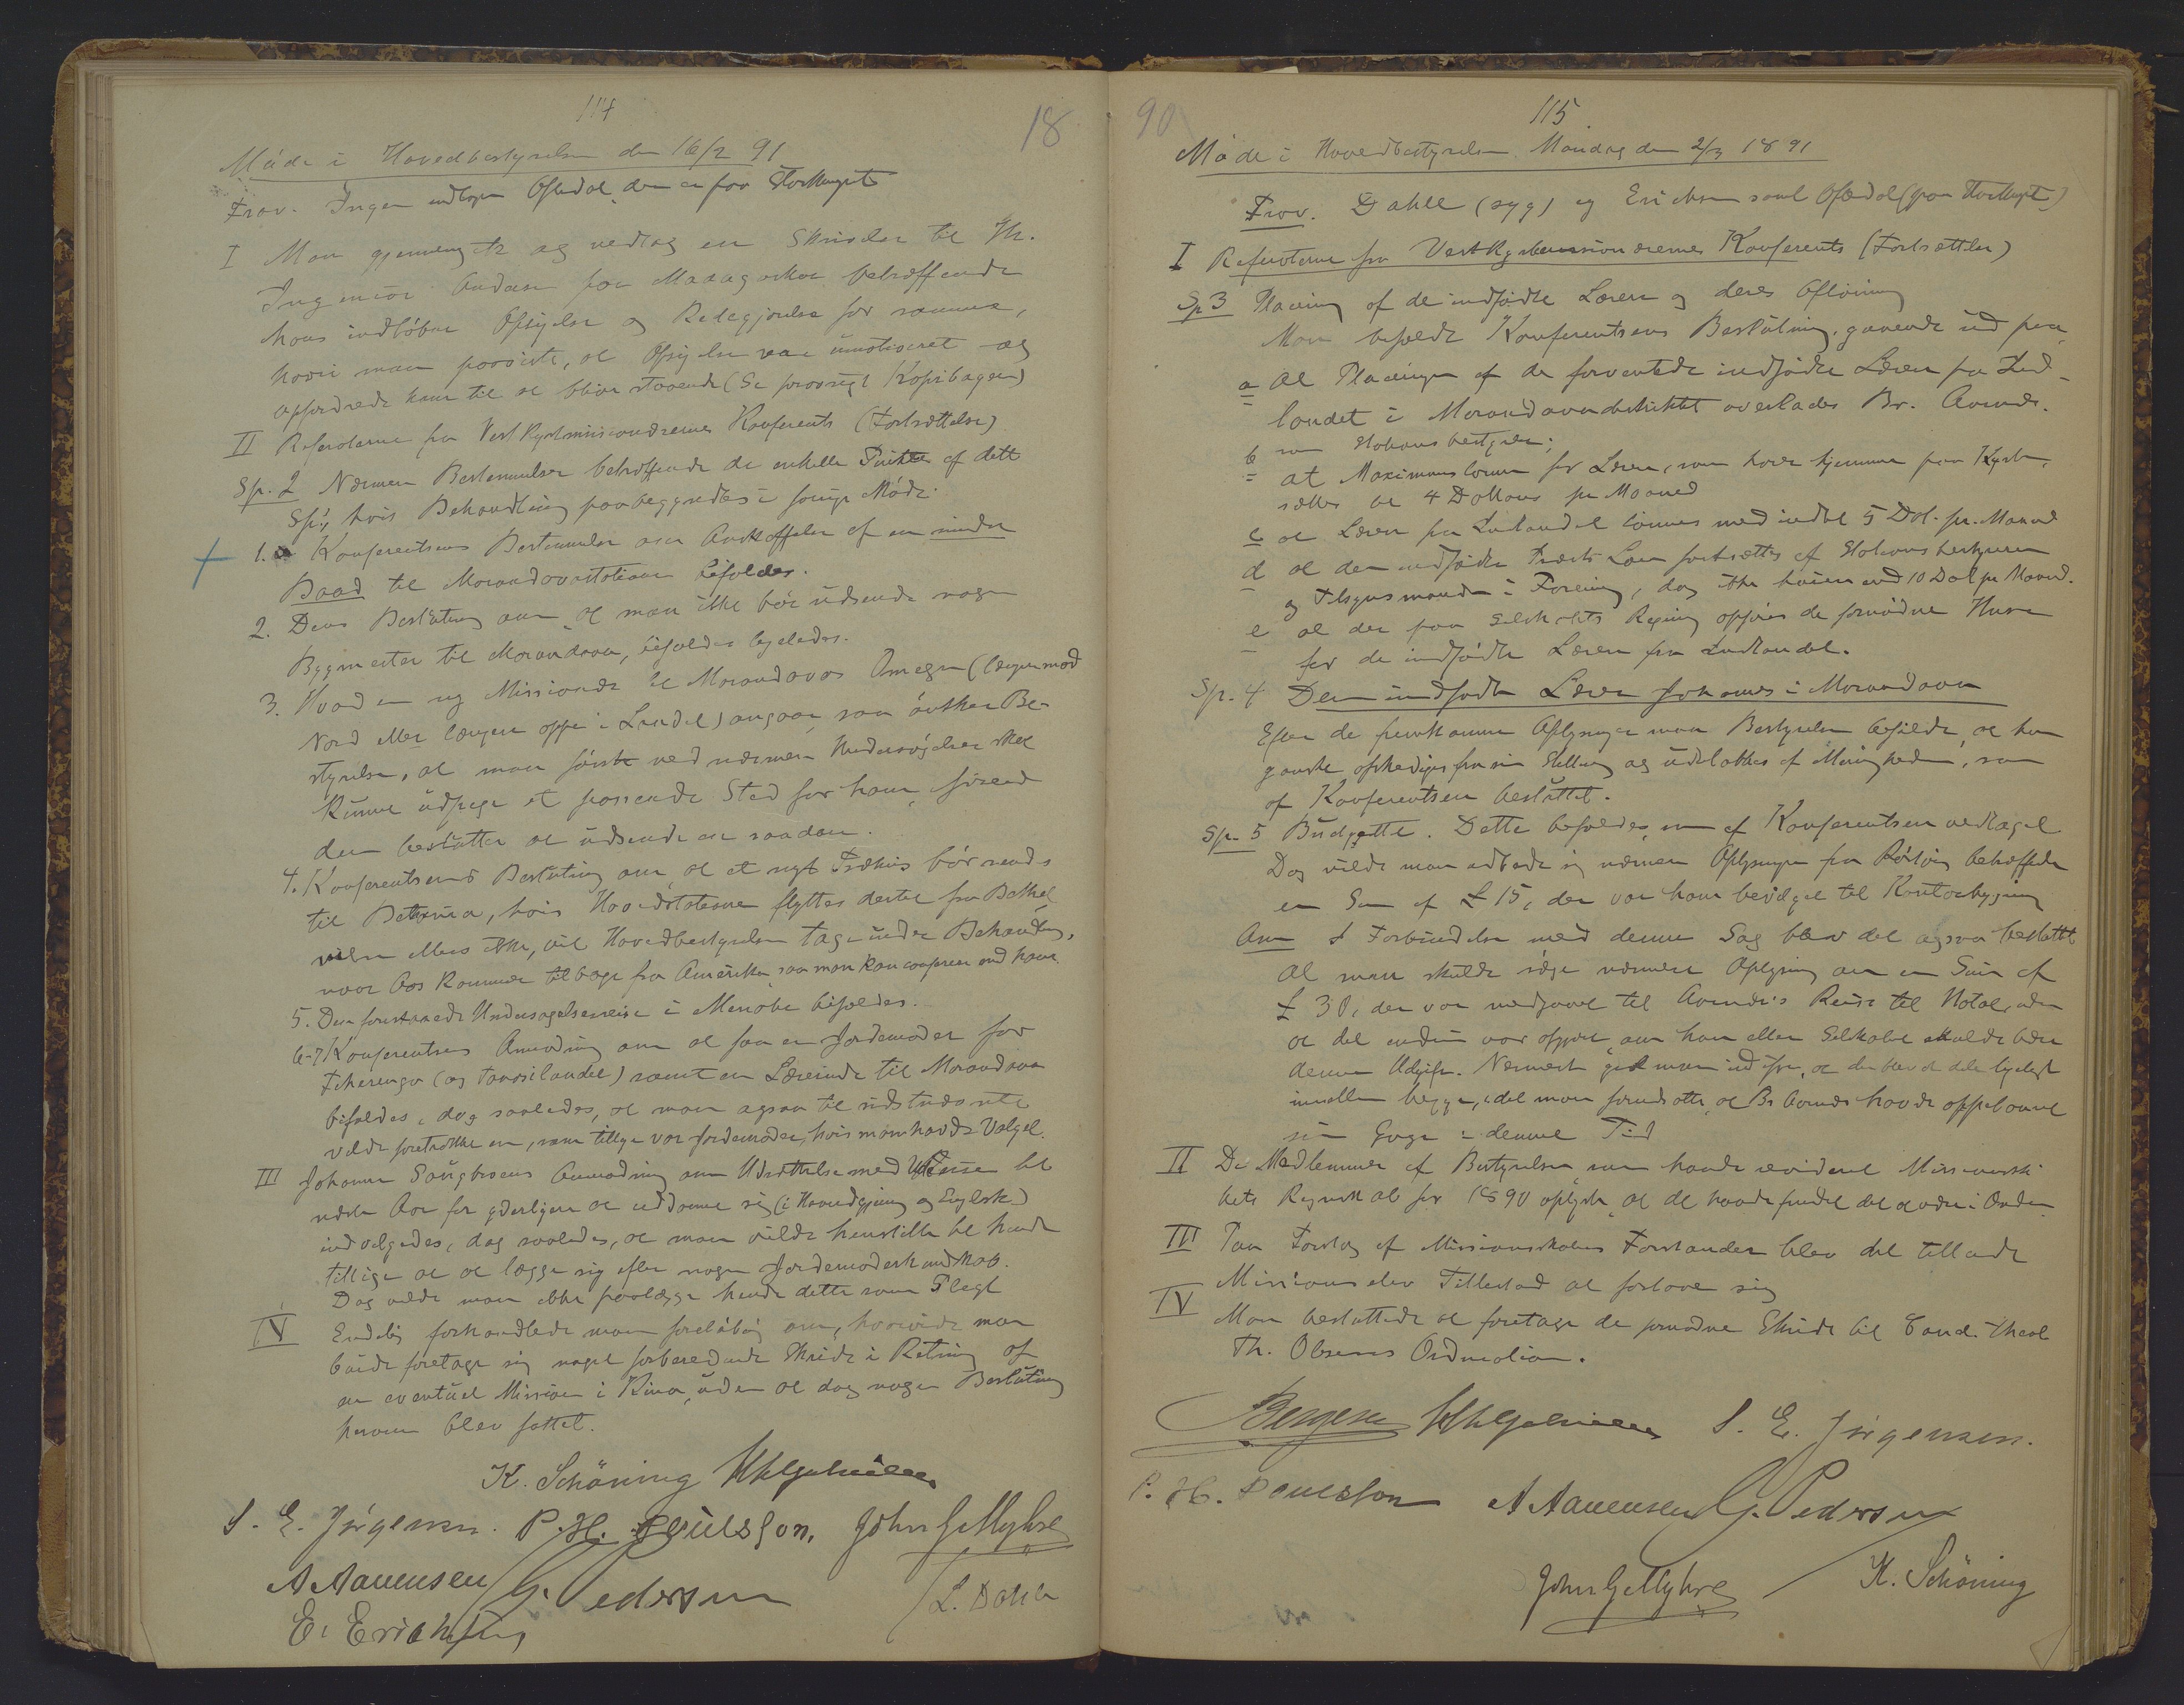 114
18
Møde i Hovedbestyrelsen den 16/2 91
Frav. Ingen undtagen Oftedal, der er paa Storthinget
I Man gjennemgik og vedtog en Skrivelse til Hr.
Ingeniør Andersen paa Madagaskar betræffende
hans indløbne Opsigelse og Redegjørelse for samme,
hvori man paaviste, at Opsigelsen var umotiveret og
opfordrede ham til at blive staaende (Se forøvrigt Kopibogen)
II Referaterne fra Vestkystmissionærernes Konferents (Fortsættelse)
Sp. 2 Nærmere Bestemmelser betræffende de enkelte Punkter af dette
Sp., hvis Behandling paabegyndtes i forrige Møde.
1. Konferentsens Bestemmelse om Anskaffelse af en mindre
Baad til Morondavastationen bifaldes.
2. Dens Beslutning om, at man ikke bør udsende nogen
Bygmester til Morondava, bifaldes ligeledes.
3. Hvad en ny Missionær til Morondavas Omegn (længer mod
Nord eller længere oppe i Landet) angaar, saa ønsker Be-
styrelsen, at man først ved nærmere Undersøgelser skal
kunne udpege et passende Sted for ham, førend
den beslutter at udsende en saadan.
4. Konferentsens Beslutning om, at et nyt Træhus bør sendes
til Betania, hvis Hovedstationen flyttes dertil fra Bethel
men ellers ikke, vil Hovedbestyrelsen tage under Behandling,
naar Aas kommer tilbage fra Amerika, saa man kan conferere med ham.
5. Den forestaaende Undersøgelsesreise i Menabe bifaldes.
6-7 Konferentsens Anmodning om at faa en Jordemoder for
Tsherengo (og Tanosilandet) samt en Lærerinde til Morondava
bifaldes, dog saaledes, at man ogsaa til sidstnævnte
vilde foretrække en, som tillige var Jordemoder, hvis man havde Valget.
III Johanne Borchgrevinks Anmodning om Udsættelse med Udreisen til
næste Aar for yderligere at uddanne sig (i Haandgjerning og Engelsk)
indvilgedes, dog saaledes, at man vilde henstille til hende
tillige at lægge sig efter nogen Jordemoderkundskab.
Dog vilde man ikke paalægge hende dette som Pligt
IV Endelig forhandlede man foreløbig om, hvorvidt man
burde foretage sig noget forberedende Skridt i Retning af
en eventuel Mission i Kina, uden at dog nogen Beslutning
herom blev fattet.
K. Schöning
S. E. Jörgensen. P. H. Poulsson, John G. Myhre
A Aanensen G. Pedersen L. Dahle
E. Erichsen
90
115
Møde i Hovedbestyrelsen Mandag den 2/3 1891
Frav. Dahle (syg) og Erichsen samt Oftedal (paa Storthinget)
I Referaterne fra Vestkystmissionærernes Konferents (Fortsættelse)
Sp 3 Placering af de indfødte Lærere og deres Aflønning
Man bifaldt Konferentsens Beslutning, gaaende ud paa,
a at Placeringen af de forventede indfødte Lærere fra Ind-
landet i Morondavadistriktet overlades Br. Aarnes.
som Stationsbestyrer;
b at Maximumslønnen for Lærere, som have hjemme paa Kysten,
sættes til 4 Dollars pr Maaned
c at Lærere fra Indlandet lønnes med indtil 5 Dol. pr. Maaned
d at den indfødte Præsts Løn fastsættes af Stationsbestyreren
og Tilsynsmanden i Forening, dog ikke høiere end 10 Dol pr Maaned.
e at der paa Selskabets Regning opføres de fornødne Huse
for de indfødte Lærere fra Indlandet.
Sp. 4 Den indfødte Lærer Johannes i Morondava
Efter de fremkomne Oplysninger maa Bestyrelsen bifalde, at han
ganske afskediges fra sin Stilling og udelukkes af Menigheden, som
af Konferentsen besluttet.
Sp. 5 Budgettet. Dette bifaldes, som af Konferentsen vedtaget
Dog vilde man udbede sig nærmere Oplysninger fra Røstvig betræffende
en Sum af £ 15, der var ham bevilget til Kontorbygning
Anm I Forbindelse med denne Sag blev det ogsaa besluttet
at man skulde søge nærmere Oplysning om en Sum af
£ 30, der var medgaaet til Aarnes's Reise til Natal, uden
at det endnu var afgjort, om han eller Selskabet skulde bære
denne Udgift. Nærmest gik man ud fra, at den blev at dele ligeligt
imellem begge, idet man forudsatte, at Br Aarnes havde oppebaaret
sin Gage i denne Tid
II De Medlemmer af Bestyrelsen som havde revideret Missionsski-
bets Regnskab for 1890 oplyste, at de havde fundet det at være i Orden
III Paa Forslag af Missionsskolens Forstander blev det tilladt
Missionselev Tillestad at forlove sig
IV Man besluttede at foretage de fornødne Skridt til Cand. theol
Th. Olsens Ordination.
Bergesen S. E. Jörgensen.
P. H. Poulsson A Aanensen G. Pedersen
John G. Myhre K. Schöning